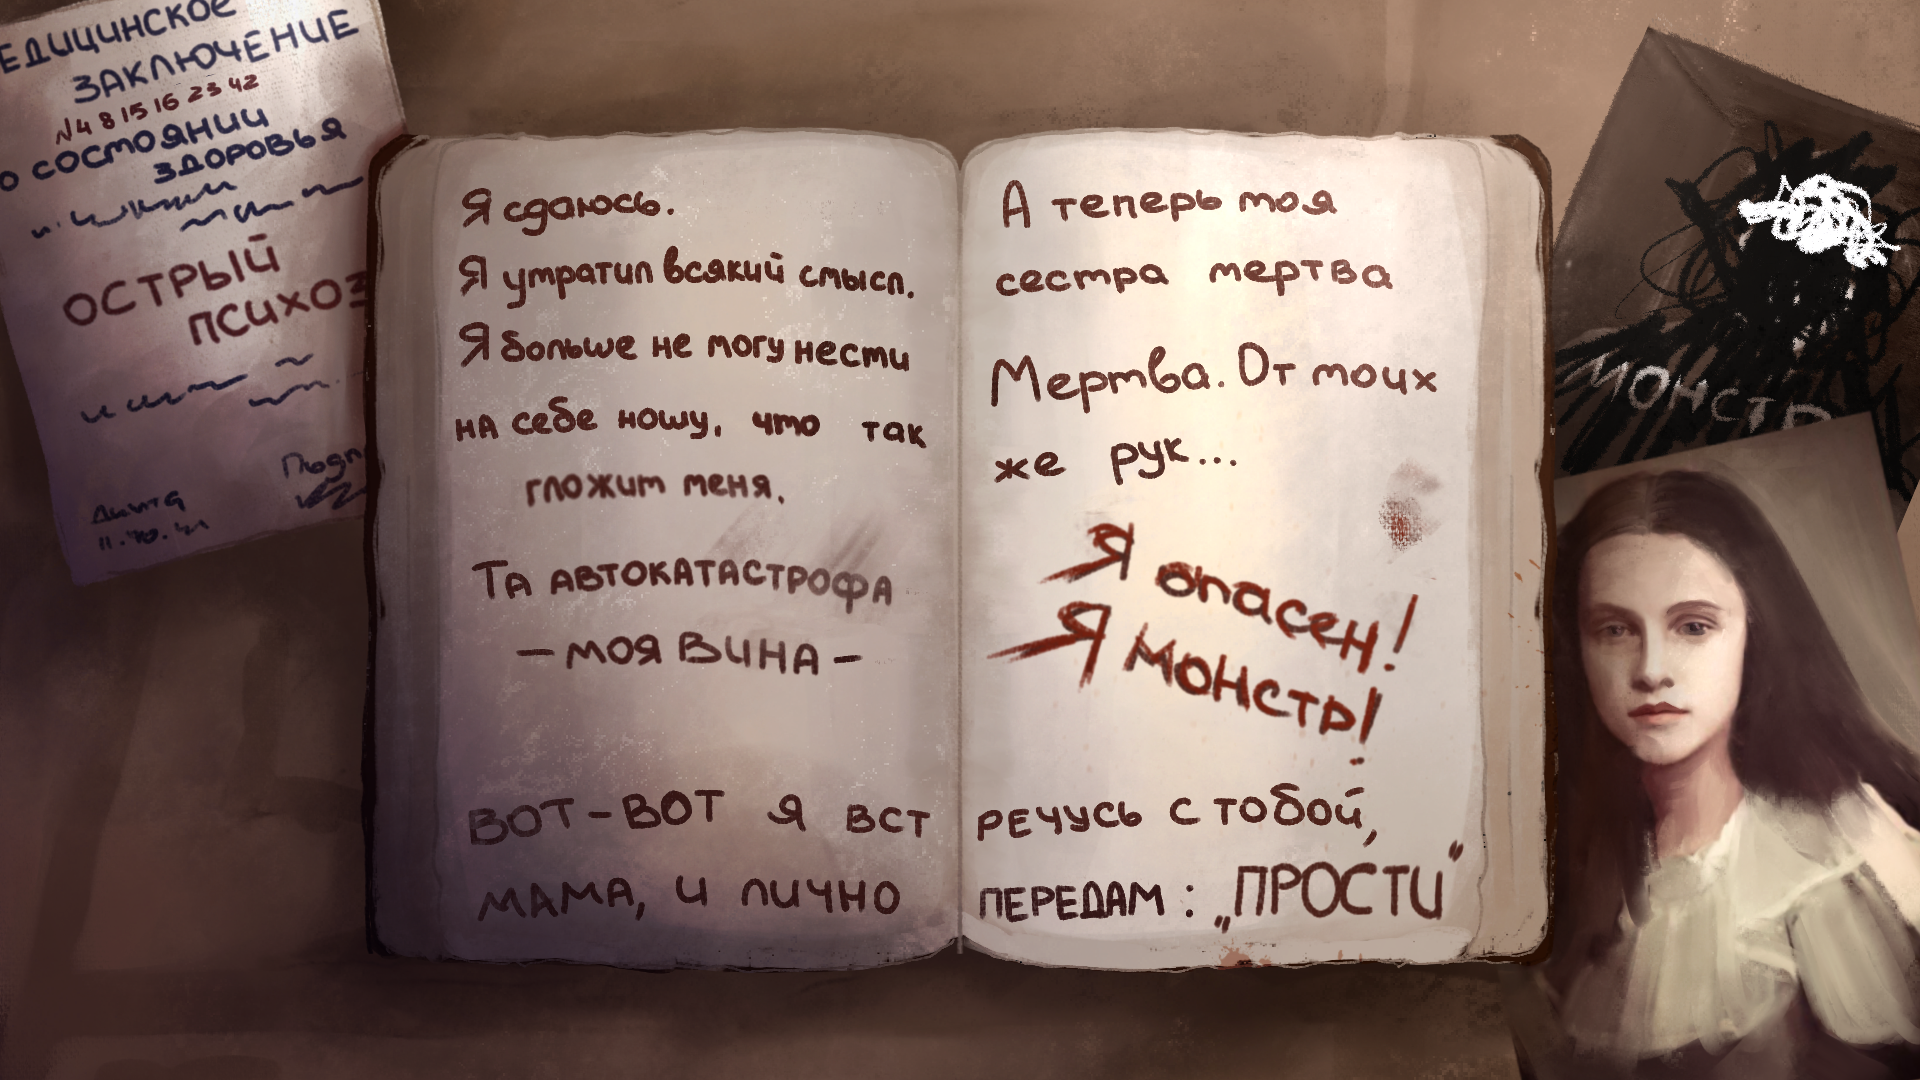 ЕДИЦИНСКОЕ
ЗАКЛЮЧЕНИЕ
№4 8 15 16 23 42
О СОСТОЯНИИ
ЗДОРОВЬЯ
ОСТРЫЙ
ПСИХОЗ
Подп
Дата
Я сдаюсь.
Я утратил всякий смысл.
Я больше не могу нести
на себе ношу, что так
гложит меня.
Та автокатастрофа
– моя вина –
ВОТ-ВОТ Я ВСТ
МАМА, И ЛИЧНО
А теперь моя
сестра мертва
Мертва. От моих
же рук...
Я опасен!
Я монстр!
РЕЧУСЬ С ТОБОЙ,
ПЕРЕДАМ: „ПРОСТИ“
МОНСТР